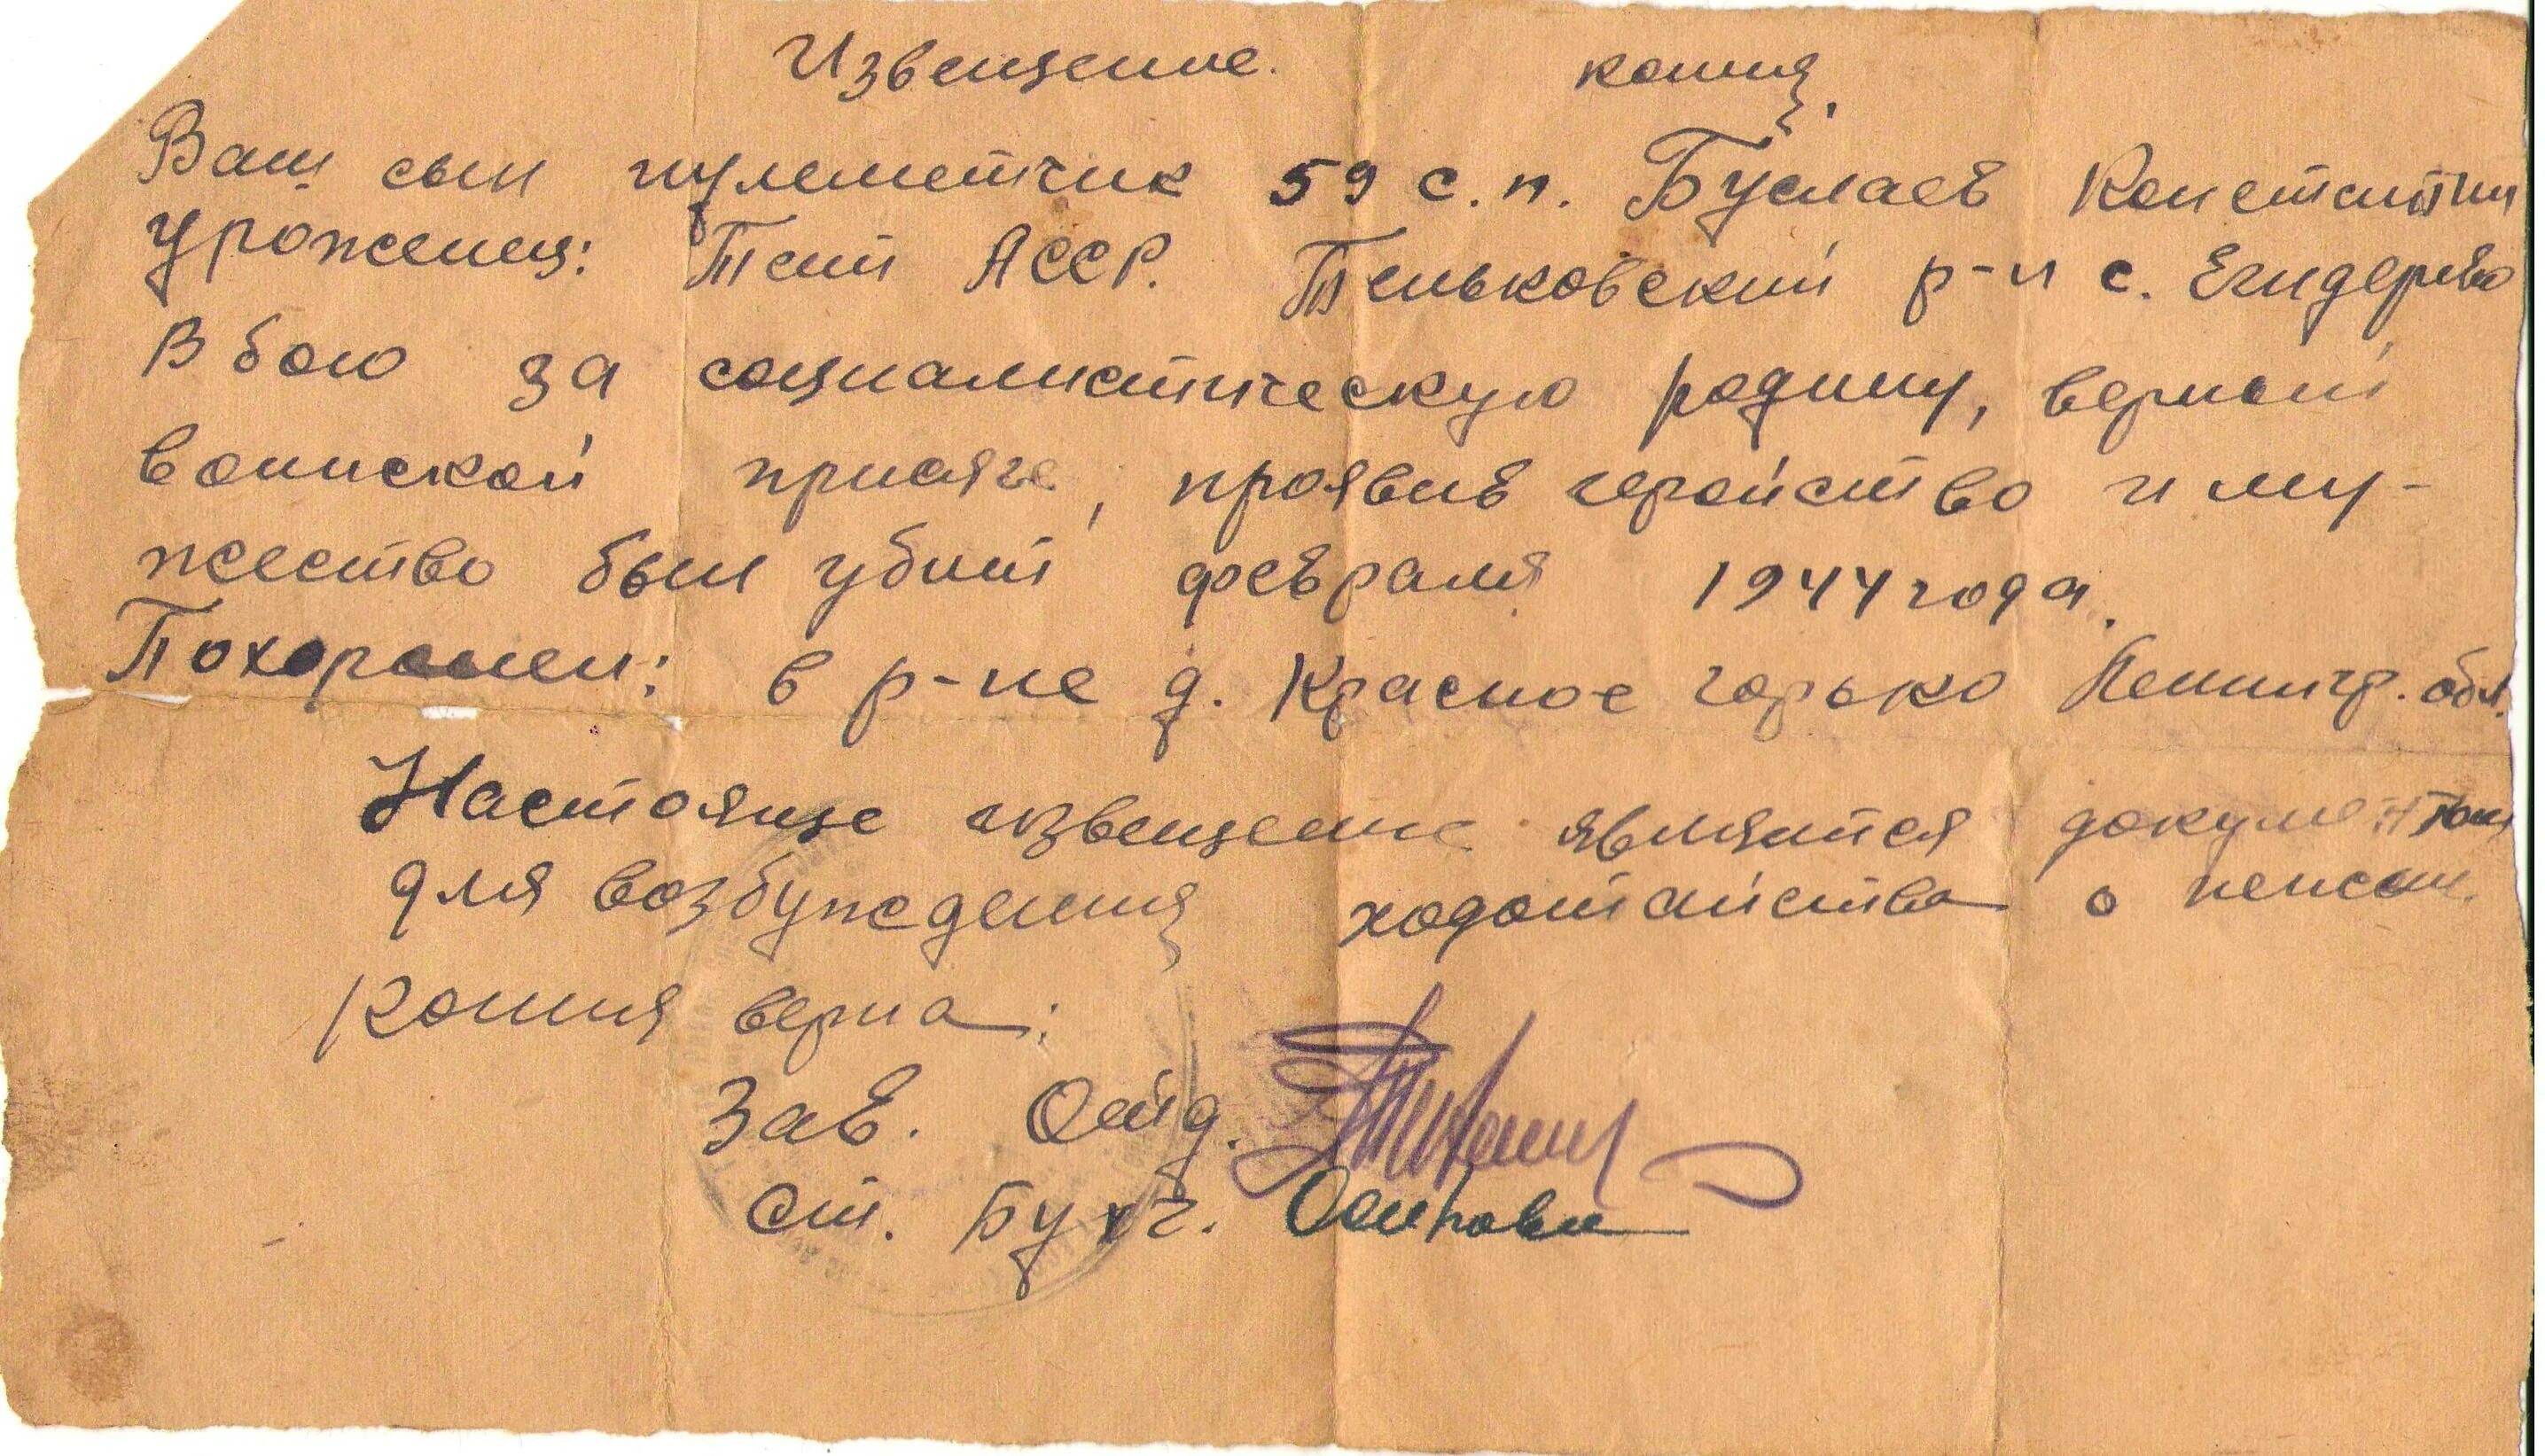 Извещение. копия.
Ваш сын пулеметчик 59 с.п. Буслаев Константин
Уроженец: Тат АССР. Теньковский р-н с. Егидерево
В бою за социалистическую родину, верный
воинской присяге, проявив геройство и му-
жество был убит февраля 1944 года.
Похоронен: в р-не д. Красное горько Ленингр. обл.
Настояще извещение является документом
для возбуждения ходотайства о пенсии.
Копия верна:
Зав.
ст. Бухг. Осипова